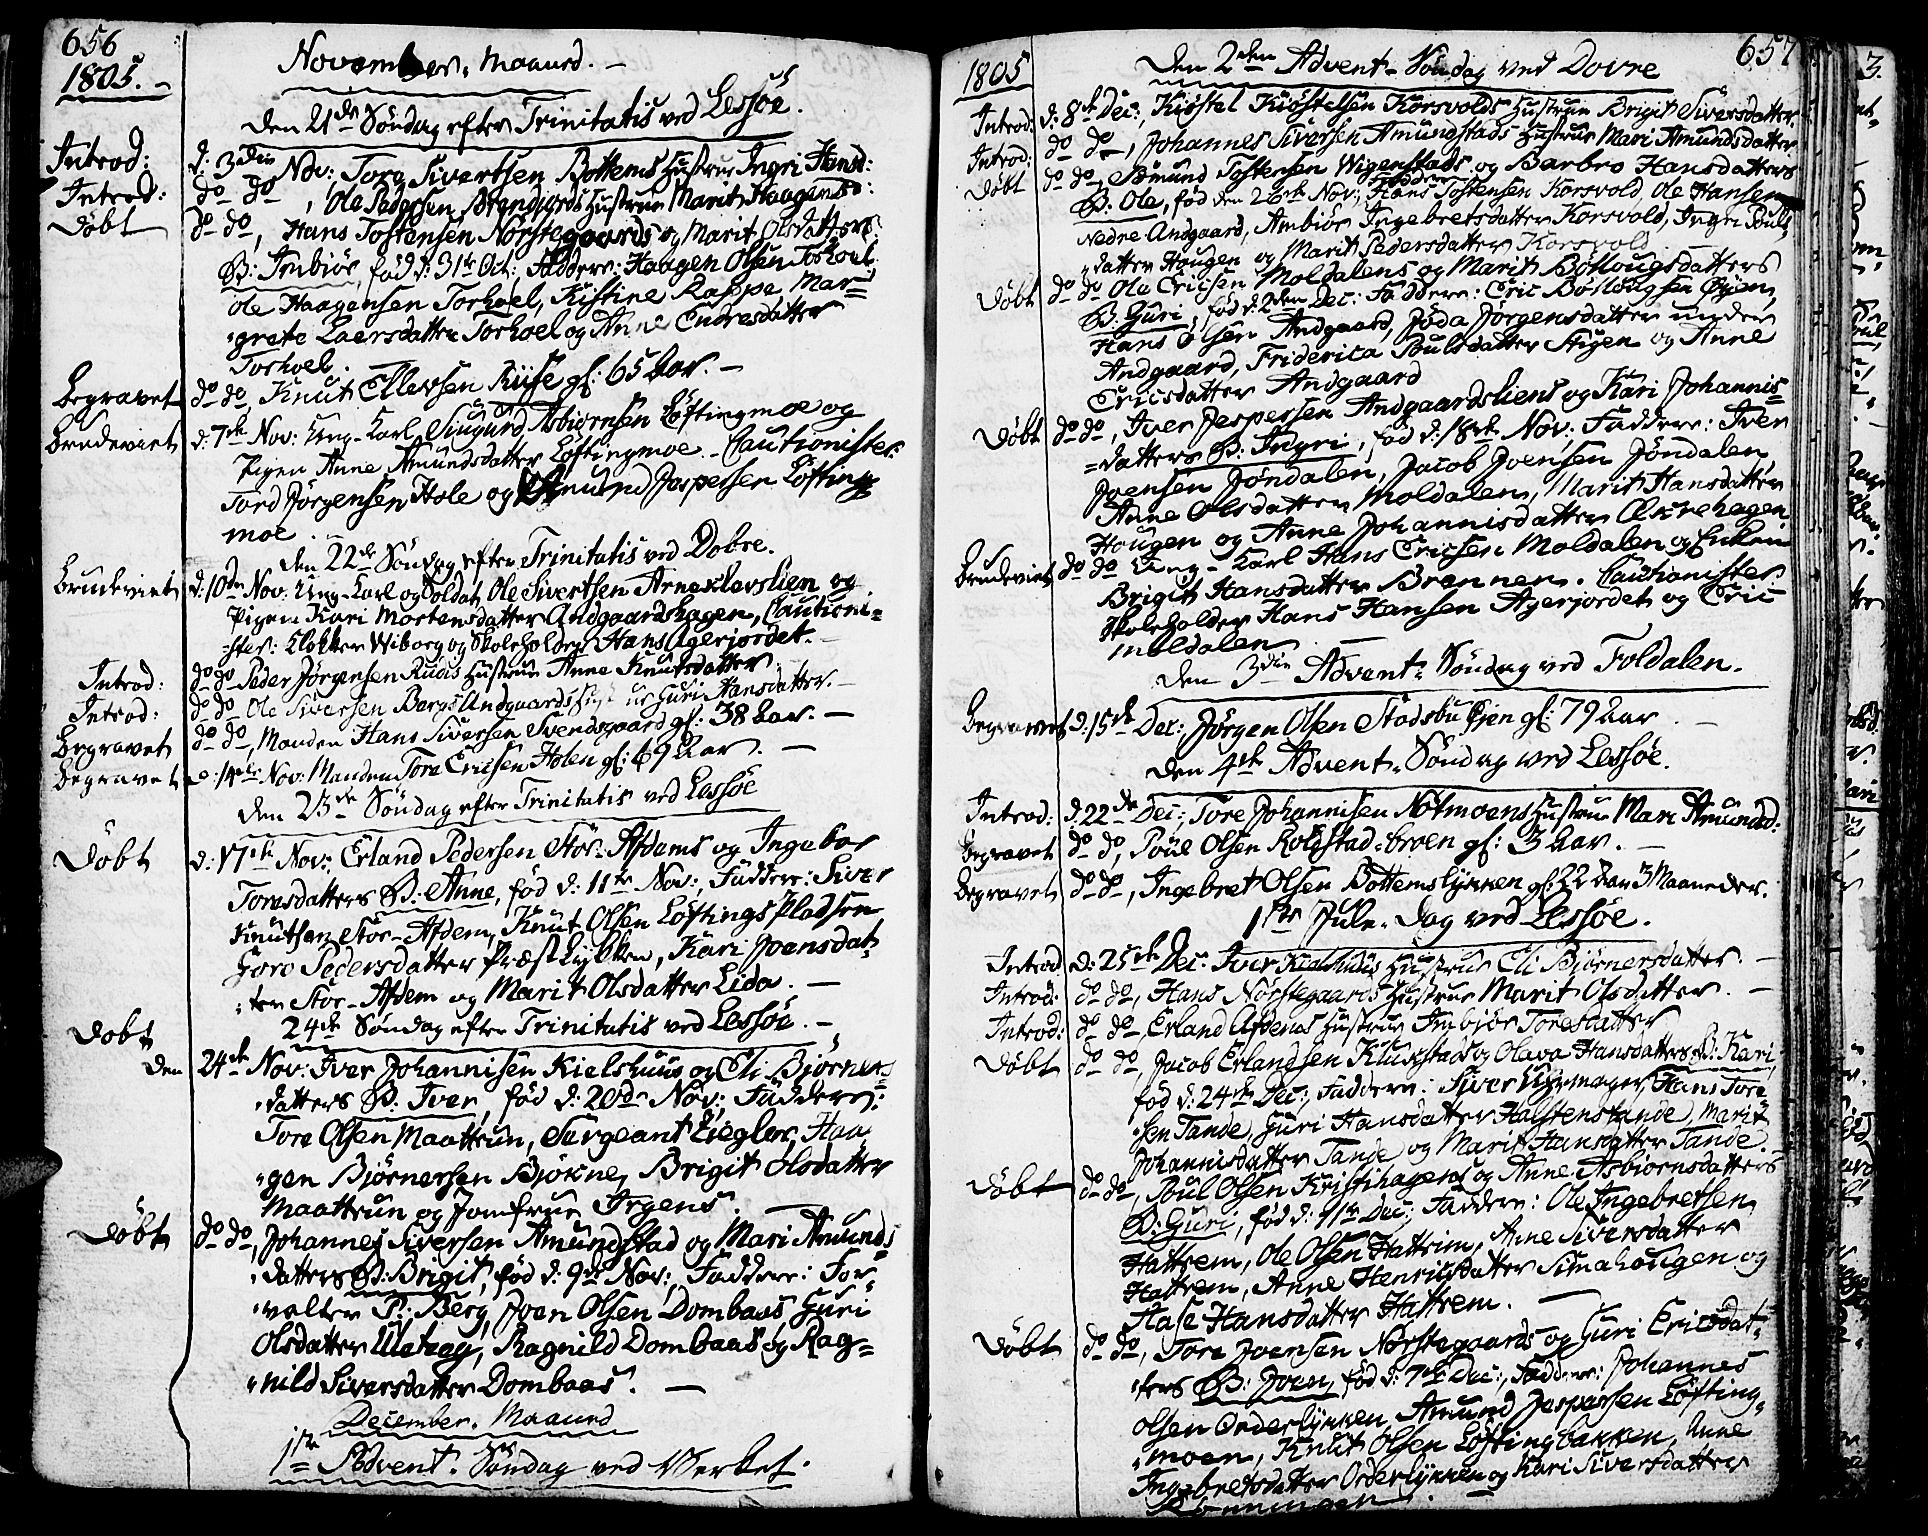 656
1805.
November. Maaned.
Den 21de Søndag efter Trinitatis ved Lessøe.
Introd: d: 3die Nov: Tore Sivertsen Bottems Hustrue Ingri Hansd:
Introd: do do, Ole Pedersen Hustrue Marit Haagensd:
Døbt do do, Hans Tostensen Norstegaards og Marit Olsdatters
B: Imbiør, fød d: 31te Oct: Faddere: Haagen Olsen Torhoel
Ole Haagensen Torhoel, Kistine Rappe Mar=
grete Laersdatter Torhoel og Anne Endresdatter
Torhoel.
Begravet do do, Knut Ellevsen Riise gl: 65 Aar. —
Brudeviet d: 7de Nov: Ung-Karl Siugurd Asbiørnsen Løftingmoe og
Pigen Anne Amundsdatter Løftingmoe. Cautionister
Tord Jørgensen Hole og Amund Jespersen Løfting
moe.
Den 22de Søndag efter Trinitatis ved Dovre.
Brudeviet d: 10de Nov: Ung-Karl og Soldat Ole Sivertsen Arneklevslien og
Pigen Kari Mortensdatter Andgaardshagen, Cautioni-
ster: Klokker Wiborg og Skoleholder Hans Agerjordet.
Introd: do do Peder Jørgensen Ruuds Hustrue Anne Knutsdatter
Introd: do do Ole Siversen Bergs Andgaards Hustrue Guri Hansdatter. —
Begravet do do, Manden Hans Siversen Svendsgaard gl: 38 Aar. —
Begravet d: 14de Nov: Manden Tore Ericsen Holen gl: 69 Aar. —
Den 23de Søndag efter Trinitatis ved Lessøe
Døbt d: 17de Nov: Erland Pedersen Stor-Afdems og Ingebor
Toresdatters B: Anne, fød d: 11te Nov: Faddere: Siver
Knutsen Stor-Afdem, Knut Olsen Løftings Pladsen
Goro Pedersdatter Præstlykken, Kari Joensdat
ter Stor-Afdem og Marit Olsdatter Lida. —
24de Søndag efter Trinitatis ved Lessøe. —
Døbt
Den 24de Nov: Iver Johannisen Kielshuus og Eli Bjørners
datters B: Iver, fød d: 20de Nov: Faddere:
Tore Olsen Maattrun, Sergeant Ziegler, Haa
gen Bjørnersen Bjøkne, Brigit Olsdatter
Maattrun og Jomfrue Irgens.
Døbt do do, Johannes Siversen Amundstad og Mari Amunds
datters B: Brigit, fød d: 9de Nov: Faddere: For
valter P: Berg, Joen Olsen Dombaas Guri
Olsdatter Ulateig, Ragnild Dombaas og Rag=
nild Siversdatter Dombaas. —
December. Maaned
1te Advent. Søndag ved Verket.
657
1805
Den 2den Advent-Søndag ved Dovre
Introd: d: 8de Dec:, Kiøstel Kiøstelsen Korsvolds Hustrue Brigit Siversdatter
Introd: do do, Johannes Siversen Amundstads Hustrue Mari Amundsdatter
Døbt do do, Edmund Tostensen Wigenstads og Barbro Hansdatters
B: Ole, fød den 26de Nov: Faddere Hans Tostensen Korsvold, Ole Hansen
Nedre Andgaard, Ambiør Ingebretsdatter Korsvold, Ingri Pouls
datter Hougen og Marit Pedersdatter Korsvold
Døbt do do Ole Ericsen Moldalens og Marit Bøtlougsdatters
B: Guri, fød d: 2den Dec: Faddere: Eric Bøtlougsen Øyen,
Hans Olsen Andgaard, Jøda Jørgensdatter under
Andgaard, Friderica Poulsdatter Stigen og Anne
Ericsdatter Andgaard
Døbt do do, Iver Jespersen Andgaardsliens og Kari Johannis=
datters B: Ingri, fød d: 18de Nov: Faddere: Iver
Joensen Jøndalen, Jacob Joensen Jøndalen
Anne Olsdatter Moldalen, Marit Hansdatter
Hougen og Anne Johannisdatter Olstehagen
Brudeviet do do Ung-Karl Hans Ericsen Moldalen og Enken
Brigit Hansdatter Brennen. Cautionister
Skoleholder Hans Hansen Agerjordet og Eric
Moldalen
Den 3die Advent: Søndag ved Foldalen.
Begravet d: 15de Dec: Jørgen Olsen Stadsbu Øjen gl: 79 Aar. —
Den 4de Advent-Søndag ved Lessøe.
Introd: d: 22de Dec:, Tore Johannisen Notmoens Hustrue Mari Amunsd:
Begravet do do, Poul Olsen Rolstad-broen gl: 3 Aar. —
Begravet do do, Ingebret Olsen Bottemslykken gl: 22 Aar 3 Maaneder.
1ste Jule-Dag ved Lessøe.
Introd d: 25de Dec: Iver Kielshuus Hustrue Eli Bjørnersdatter. —
Introd: do do, Hans Norstegaards Hustrue Marit Olsdatter. —
Introd: do do, Erland Afdems Hustrue Imbjør Toresdatter
Døbt do do, Jacob Erlandsen Klukstads og Olava Hansdatters B: Kari
fød d: 24de Dec:, Faddere: Siver Uhrmager, Hans Tore
sen Tande, Guri Hansdatter Halstenstande, Marit
Johannisdatter Tande og Marit Hansdatter Tande.
Døbt do do, Poul Olsen Kristihagens og Anne Asbiørnsdatters
B: Guri, fød d: 11te Dec: Faddere: Ole Ingebretsen
Hattrem, Ole Olsen Hattrem, Anne Siversdatter
Hattrem, Anne Henricsdatter Simahougen og
Hase Hansdatter Hattrem. —
Døbt do do, Tore Joensen Norstegaards og Guri Ericsdat=
ters B: Joen, fød d: 7de Dec:, Faddere: Johannes
Olsen Orderlykken, Amund Jespersen Løfting
moen, Knut Olsen Løftingbakken, Anne
Ingebretsdatter Orderlykken og Kari Siversdatter